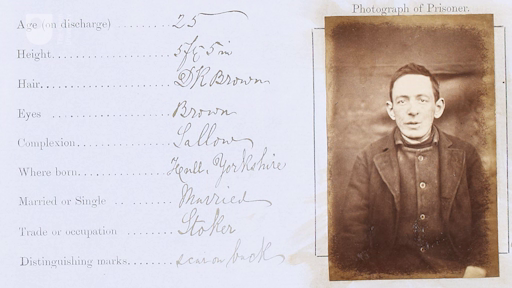 Photograph of Prisoner.
Age (on discharge) ........ 25
Height ........ 5ft 5in
Hair ........ DK Brown
Eyes ........ Brown
Complexion ........ Sallow
Where born ........ Hull, Yorkshire
Married or Single ........ Married
Trade or occupation ........ Stoker
Distinguishing marks ........ scar on back